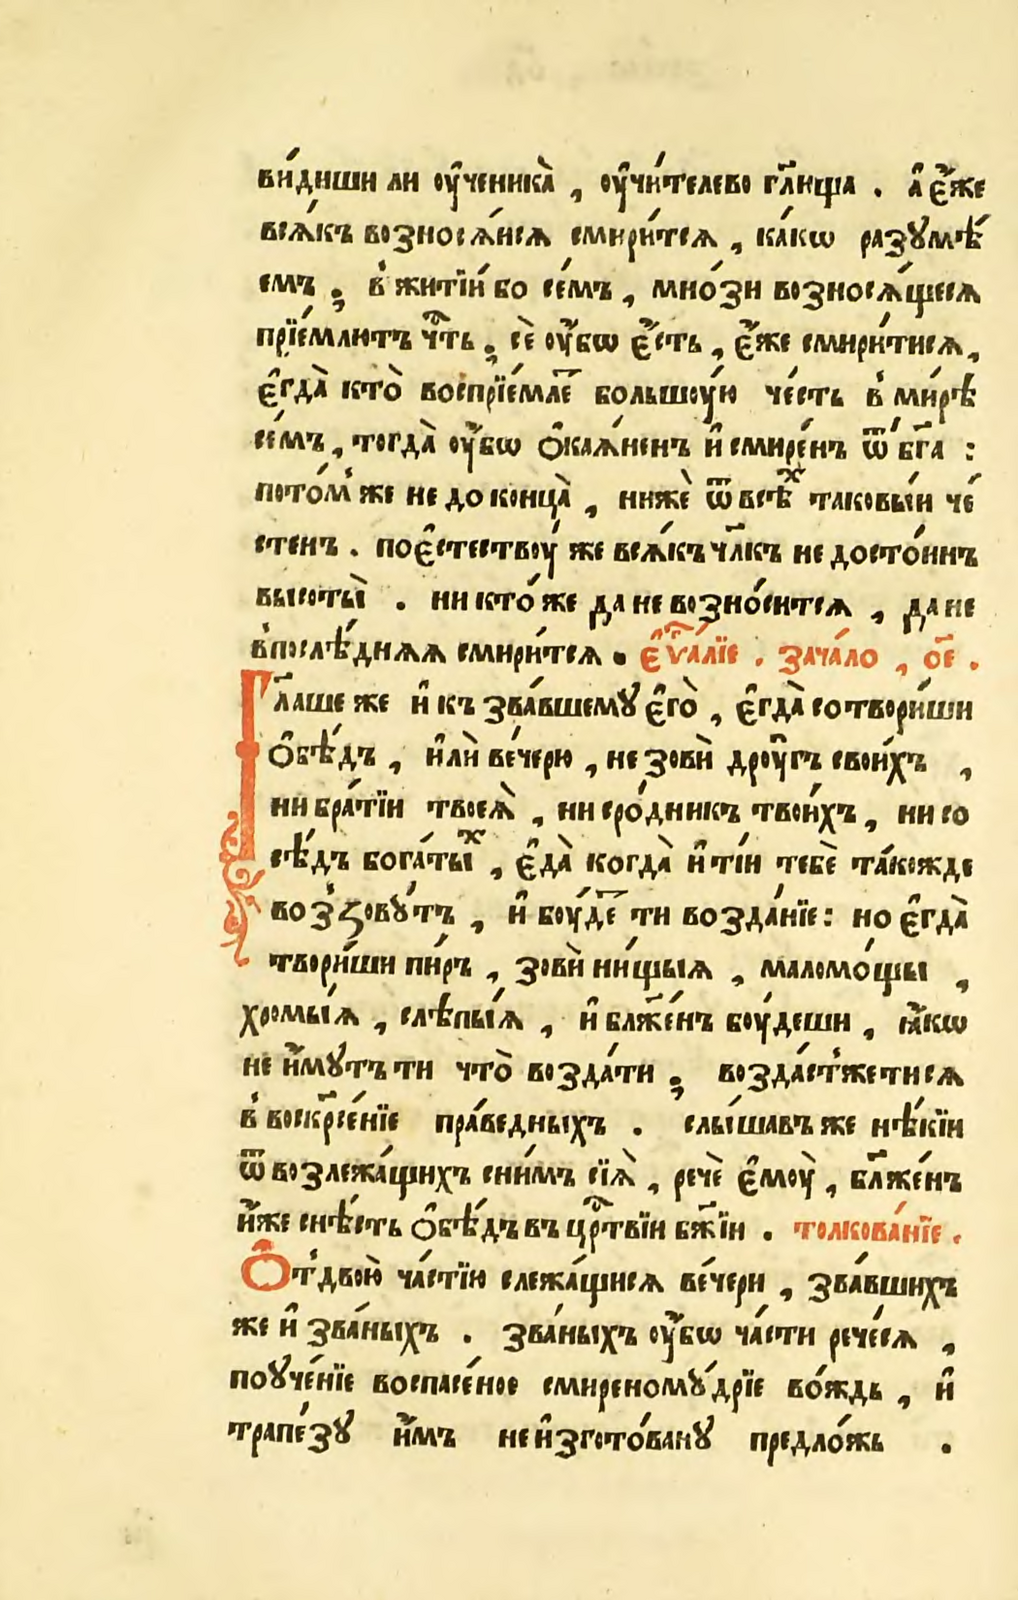 ви́диши ли ѹ҆ченика̀ , ѹ҆чи́телево гл҃ища . а҆ є҆́же
всѧ́къ возносѧ́йсѧ смири́тсѧ , ка́кѡ разꙋмѣ́
емъ ; в̾ житїи́ бо се́мъ , мно́зи возносѧ́щеесѧ
прїе́млютъ чⷭ҇ть ; сѐ ѹ҆́бѡ є҆́сть , є҆́же смири́тисѧ ,
є҆гда̀ кто̀ воспрїе́млеⷮ большѹ́ю че́сть в̾ ми́рѣ
се́мъ , тогда̀ ѹ҆́бѡ ѻ҆каѧ́ненъ и҆ смире́нъ ѿ бг҃а :
пото́м̾ же не до конца̀ , нижѐ ѿ всѣⷯ таковы́и че́
стенъ . по є҆стествѹ́ же всѧ́къ чл҃къ не досто́инъ
высоты̀ . никто́же да не возно́ситсѧ , да не
в̾послѣ́днѧѧ смири́тсѧ . є҆ѵⷢ҇алїе . зача́ло , о҃е .
Гл҃аше же и҆ къ зва́вшемꙋ є҆го̀ , є҆гда̀ сотвори́ши
ѻ҆бѣ́дъ , и҆лѝ ве́черю , не зовѝ дрѹ҆́гъ свои́хъ ,
ни бра́тїи твоеѧ̀ , ни сро́дникъ твои́хъ , ни со
сѣ́дъ бога́тыⷯ , є҆да̀ когда̀ и҆ ті́и тебѐ та́кожде
воз̾ꙁовꙋ́тъ , и҆ бѹ́деⷮ ти возда́нїе : но є҆гда̀
твори́ши пи́ръ , зовѝ ни́щыѧ , маломо́щы ,
хромы́ѧ , слѣпы́ѧ , и҆ блж҃е́нъ бѹ́деши , ꙗ҆́кѡ
не и҆́мꙋтъ ти что̀ возда́ти ; возда́ст̾жетисѧ
в̾ воскрⷭ҇е́нїе пра́ведныхъ . слы́шавъ же нѣ́кїи
ѿ возлежа́щихъ сни́мъ сїѧ̀ , речѐ є҆мѹ̀ , бл҃же́нъ
и҆́же снѣ́сть ѻ҆бѣ́дъ въ црⷭ҇твїи бж҃їи . толкова́нїе .
Ѻ҆т̾ двою̀ ча́стїю слежа́щиисѧ ве́чери , зва́вшихъ
же и҆ зва́ныхъ . зва́ныхъ ѹ҆́бѡ ча́сти рече́сѧ ,
поꙋче́нїе воспасе́ное смиреномꙋ́дрїе во́ждь , и҆
трапе́зꙋ и҆́мъ не и҆згото́ванꙋ предло́жь .